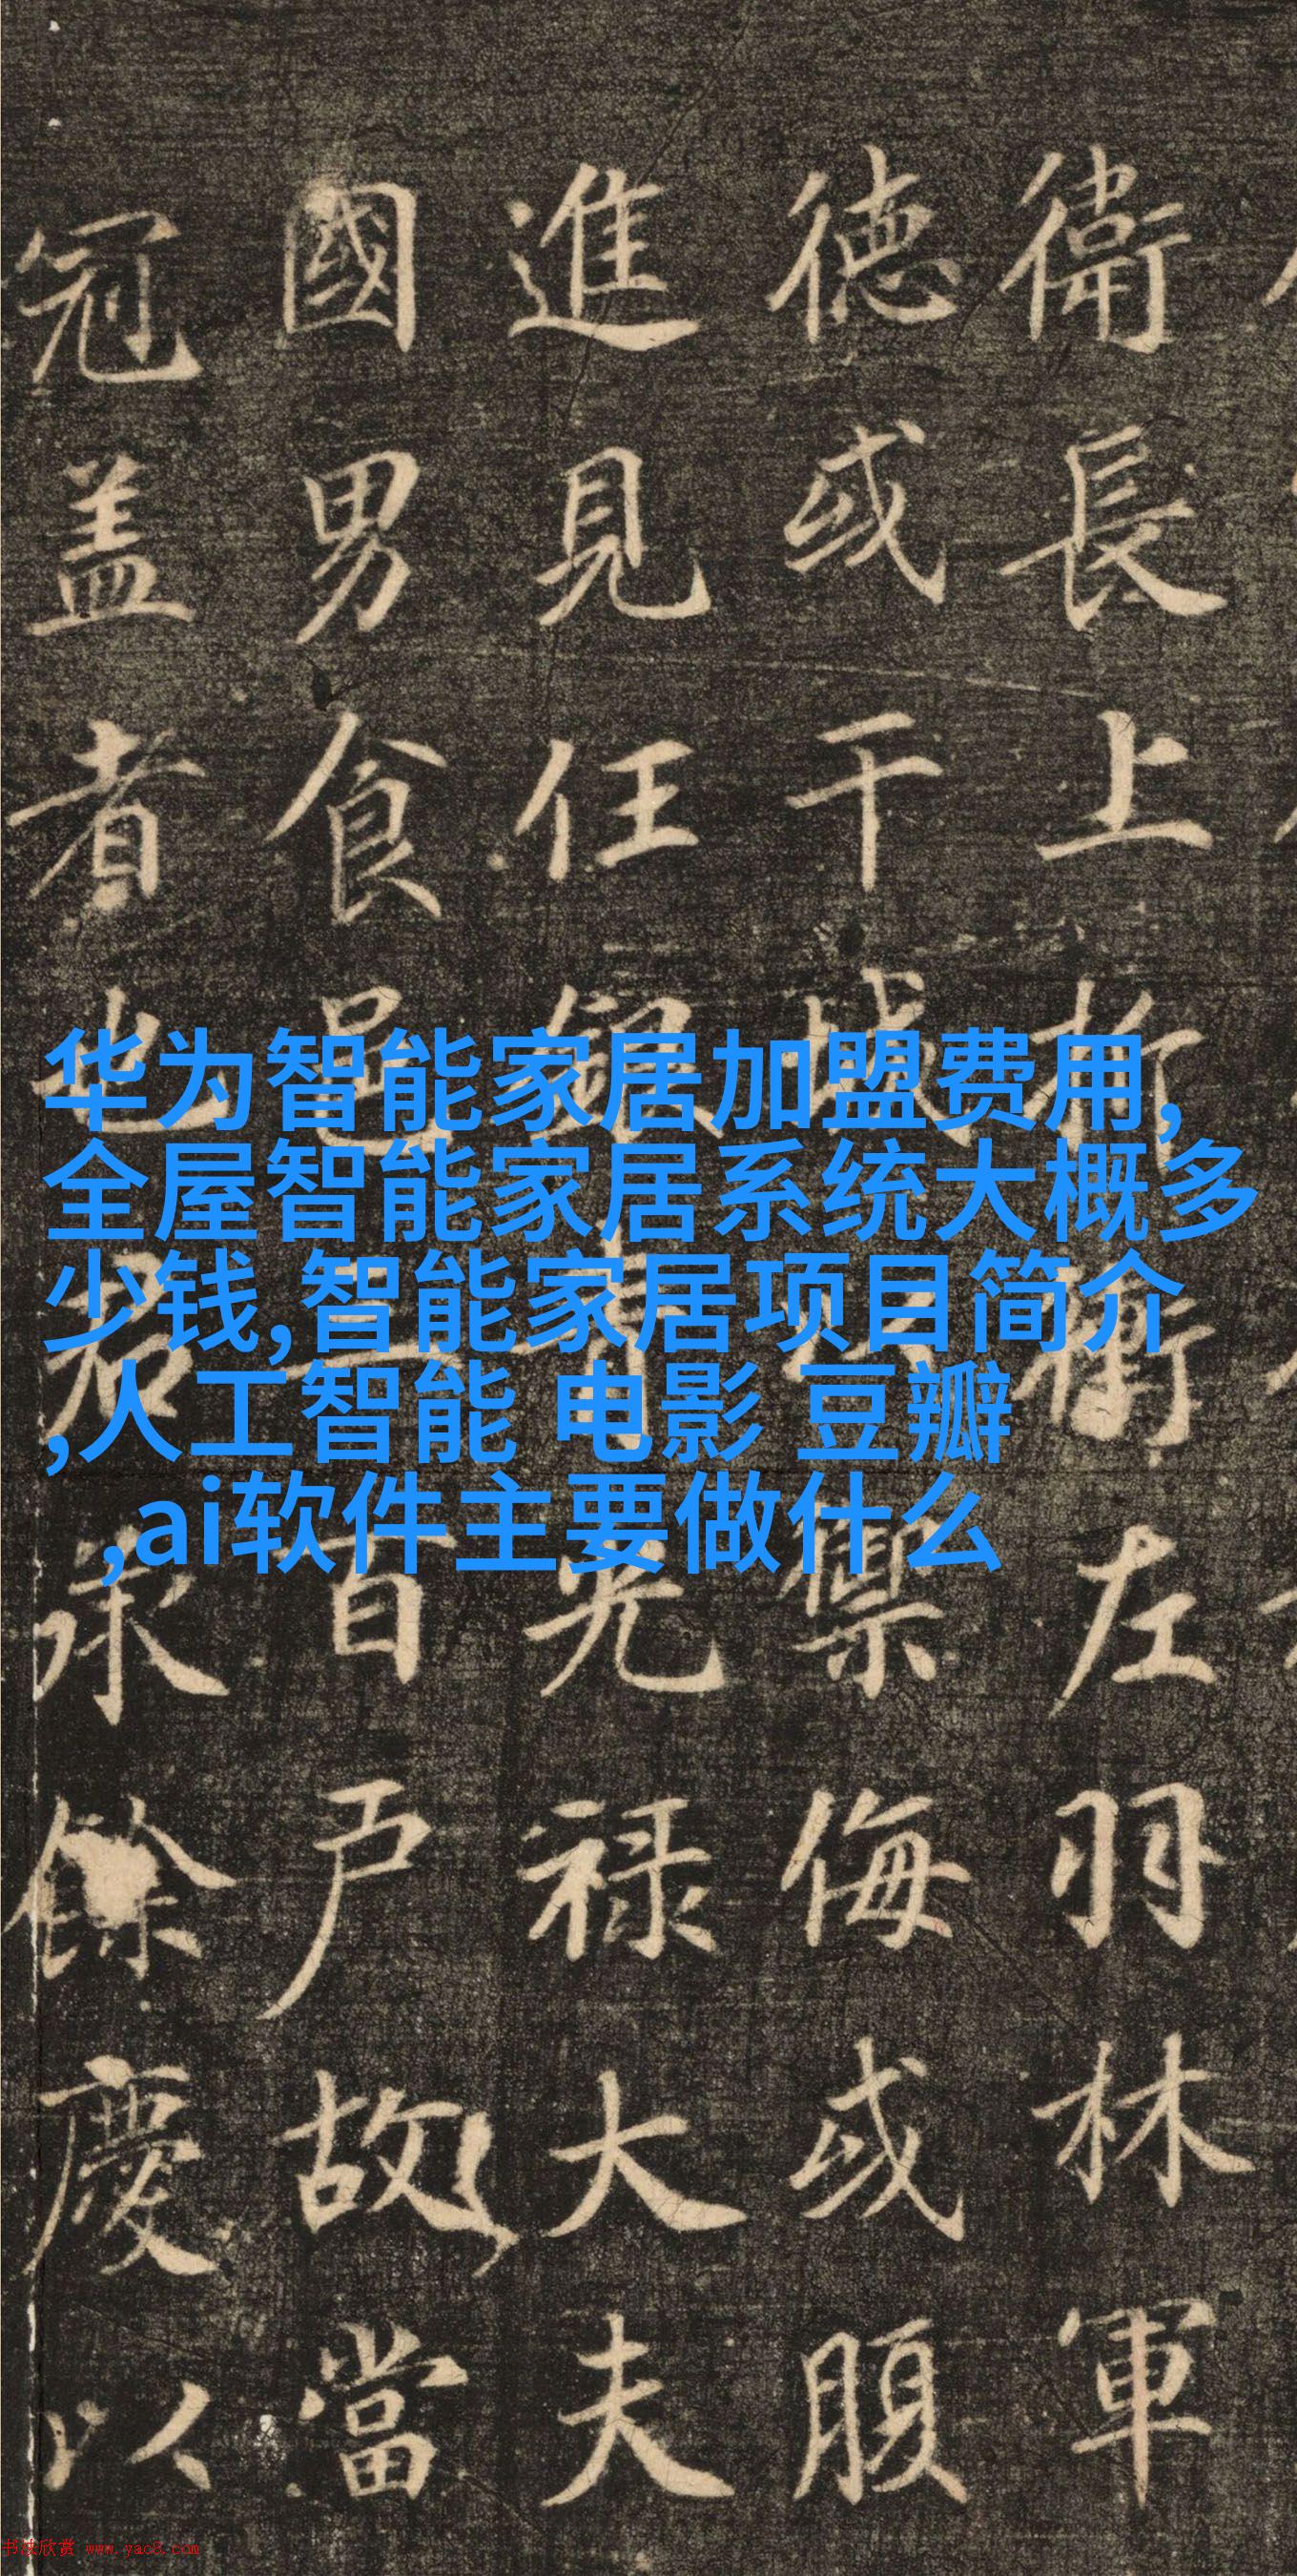 衛長上折衝左羽林軍
德或干城禦侮或腹
進見任銀青光禄大夫
國男食邑百户故當
冠盖者也君承餘慶以
华为智能家居加盟费用,
全屋智能家居系统大概多
少钱,智能家居项目简介
,人工智能 电影 豆瓣
,ai软件主要做什么
书法欣赏 www.yac8.com